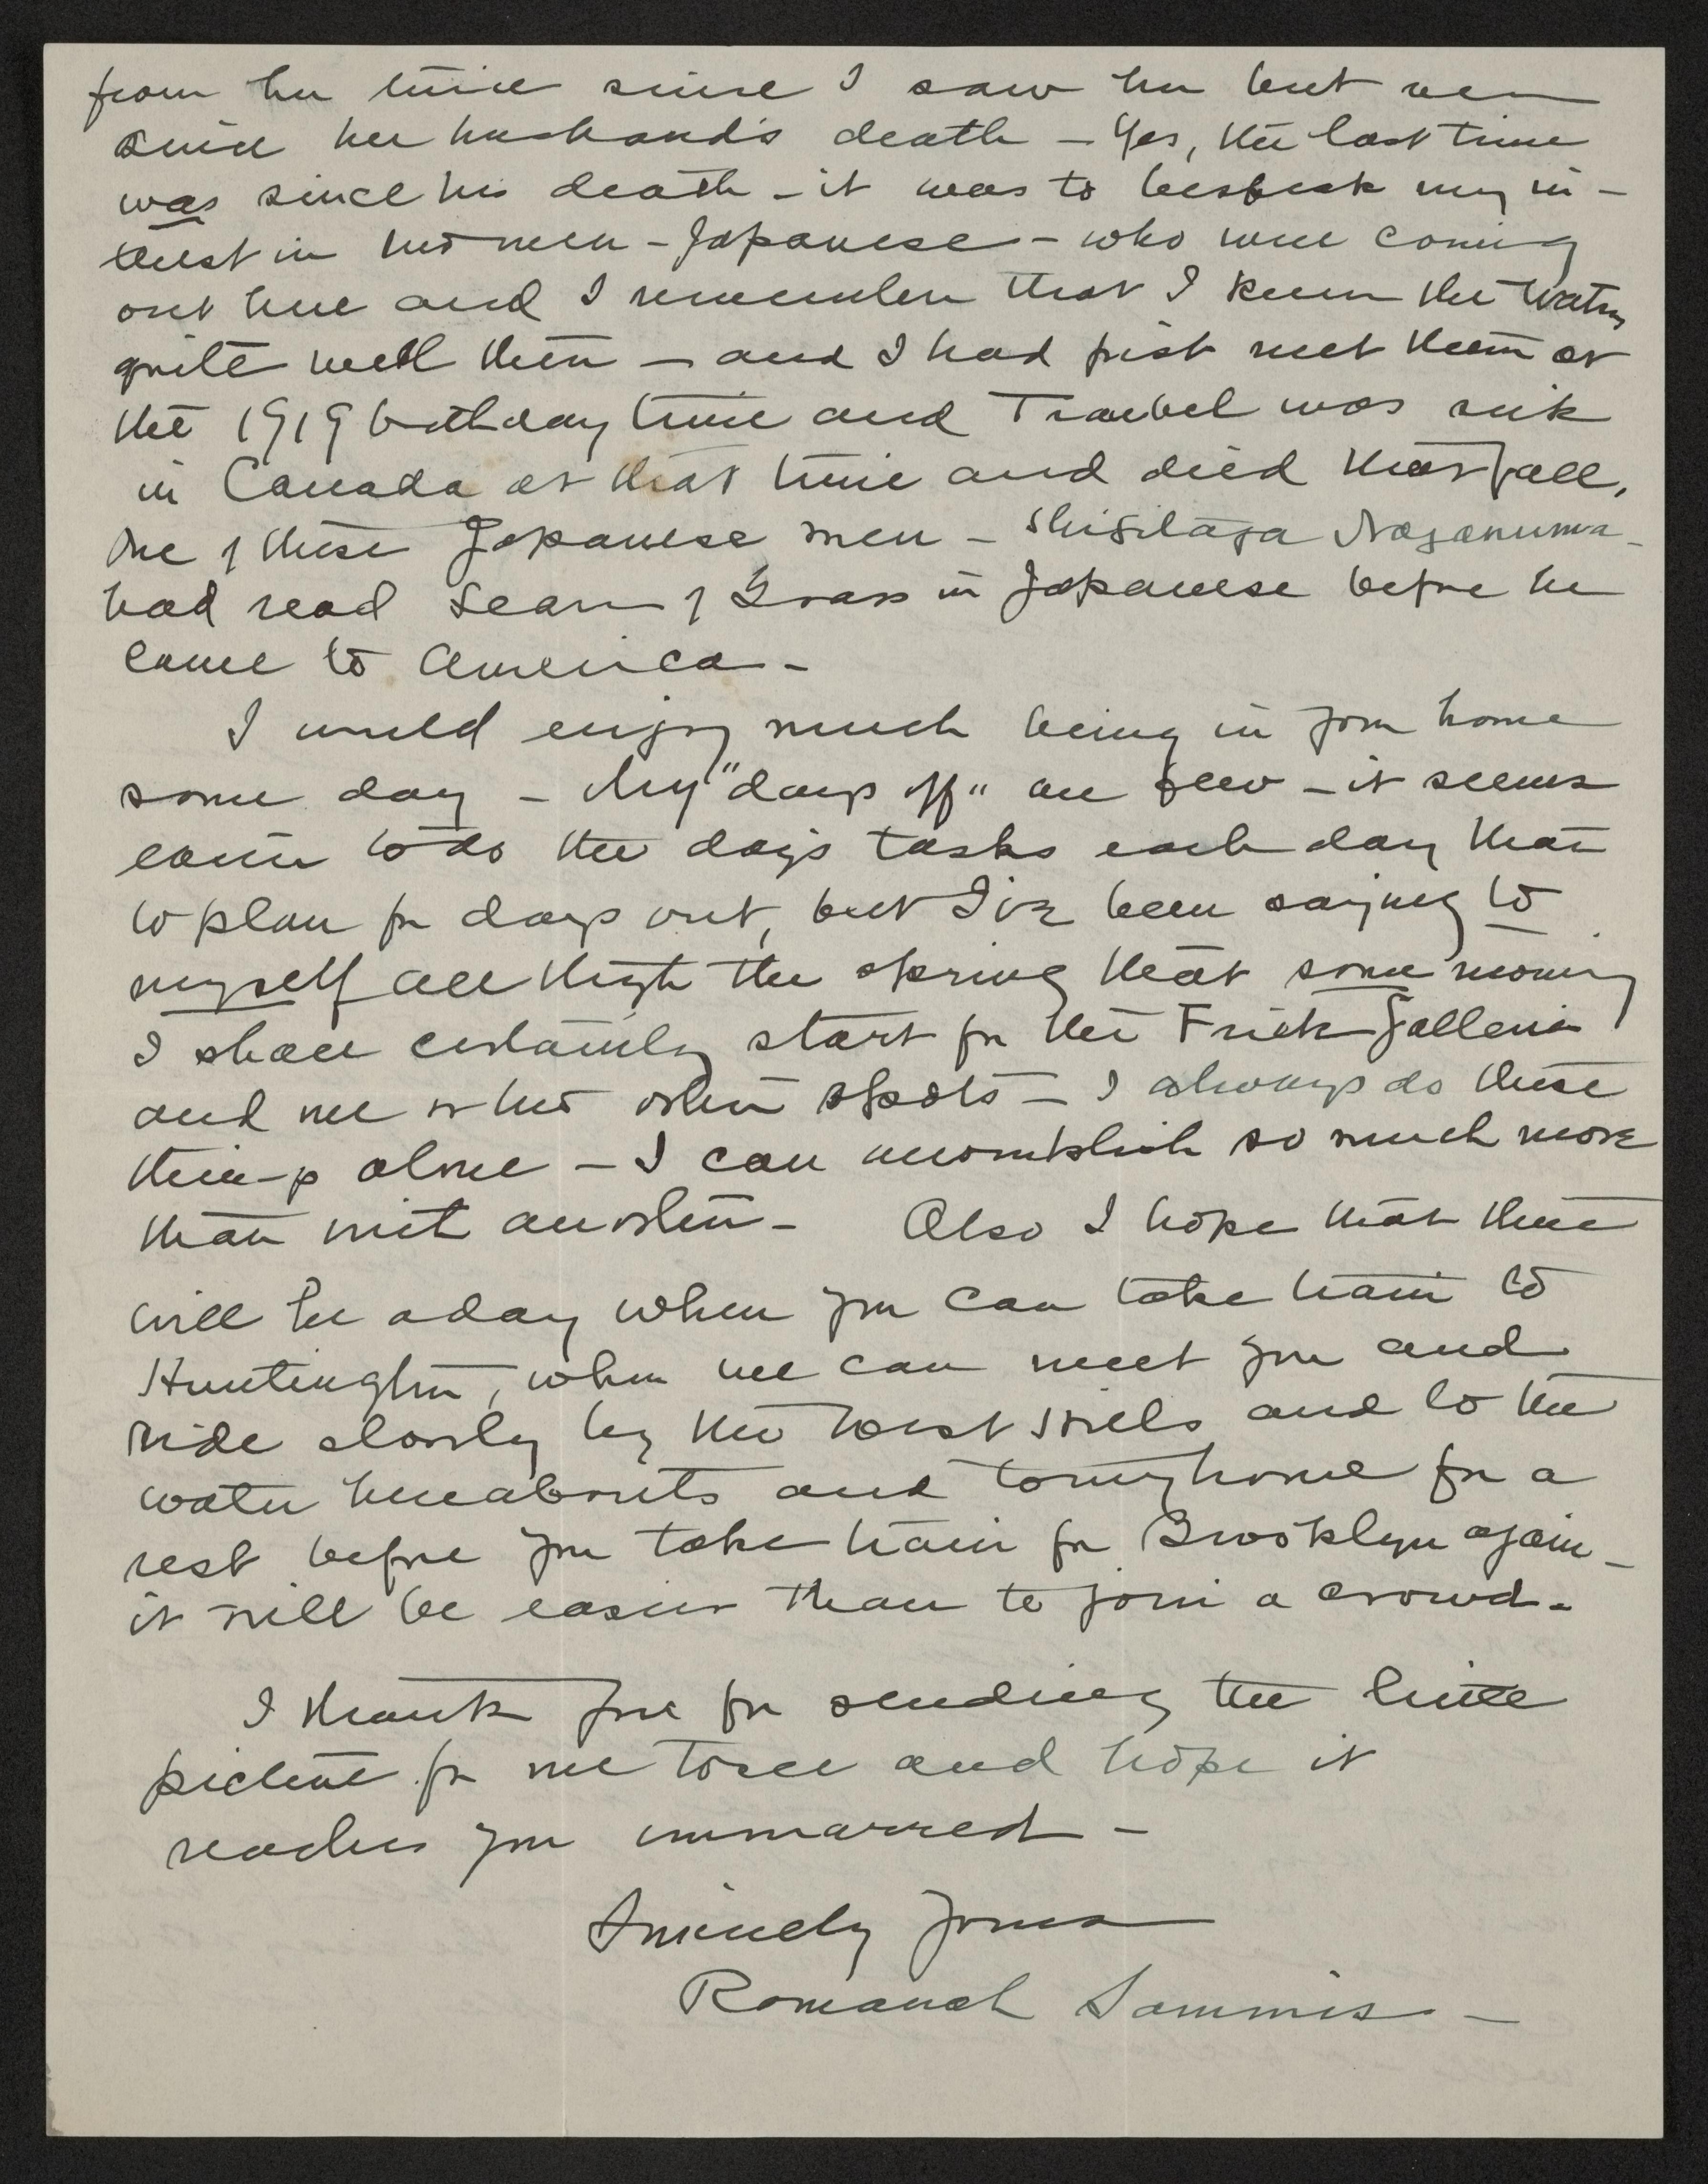 from her twice since I saw her but never
since her husband's death — Yes, the last time
was since his death — it was to bespeak my in-
terest in two men — Japanese — who were coming
out here and I remember that I knew the
quite well then — and I had just met them at
the 1919 birthday time and Traubel was sick
in Canada at that time and died that fall.
One of these Japanese men — Naganuma —
had read Leaves of Grass in Japanese before he
came to America —
I would enjoy much being in your home
some day — My "days off" are few — it seems
easier to do the day's tasks each day than
to plan for days out, but I've been saying to
myself all thrgh the spring that some morning
I shall certainly start for the Frick Galleries
and one or two other spots — I always do these
things alone — I can accomplish so much more
than with another — Also I hope that there
will be a day when you can take train to
Huntington, when we can meet you and
ride slowly by the West Hills and to the
water hereabouts and to my home for a
rest before you take train for Brooklyn again —
it will be easier than to join a crowd.
I thank you for sending the little
picture for me to see and hope it
reaches you unmarred —
Sincerely yours
Romanah Sammis —